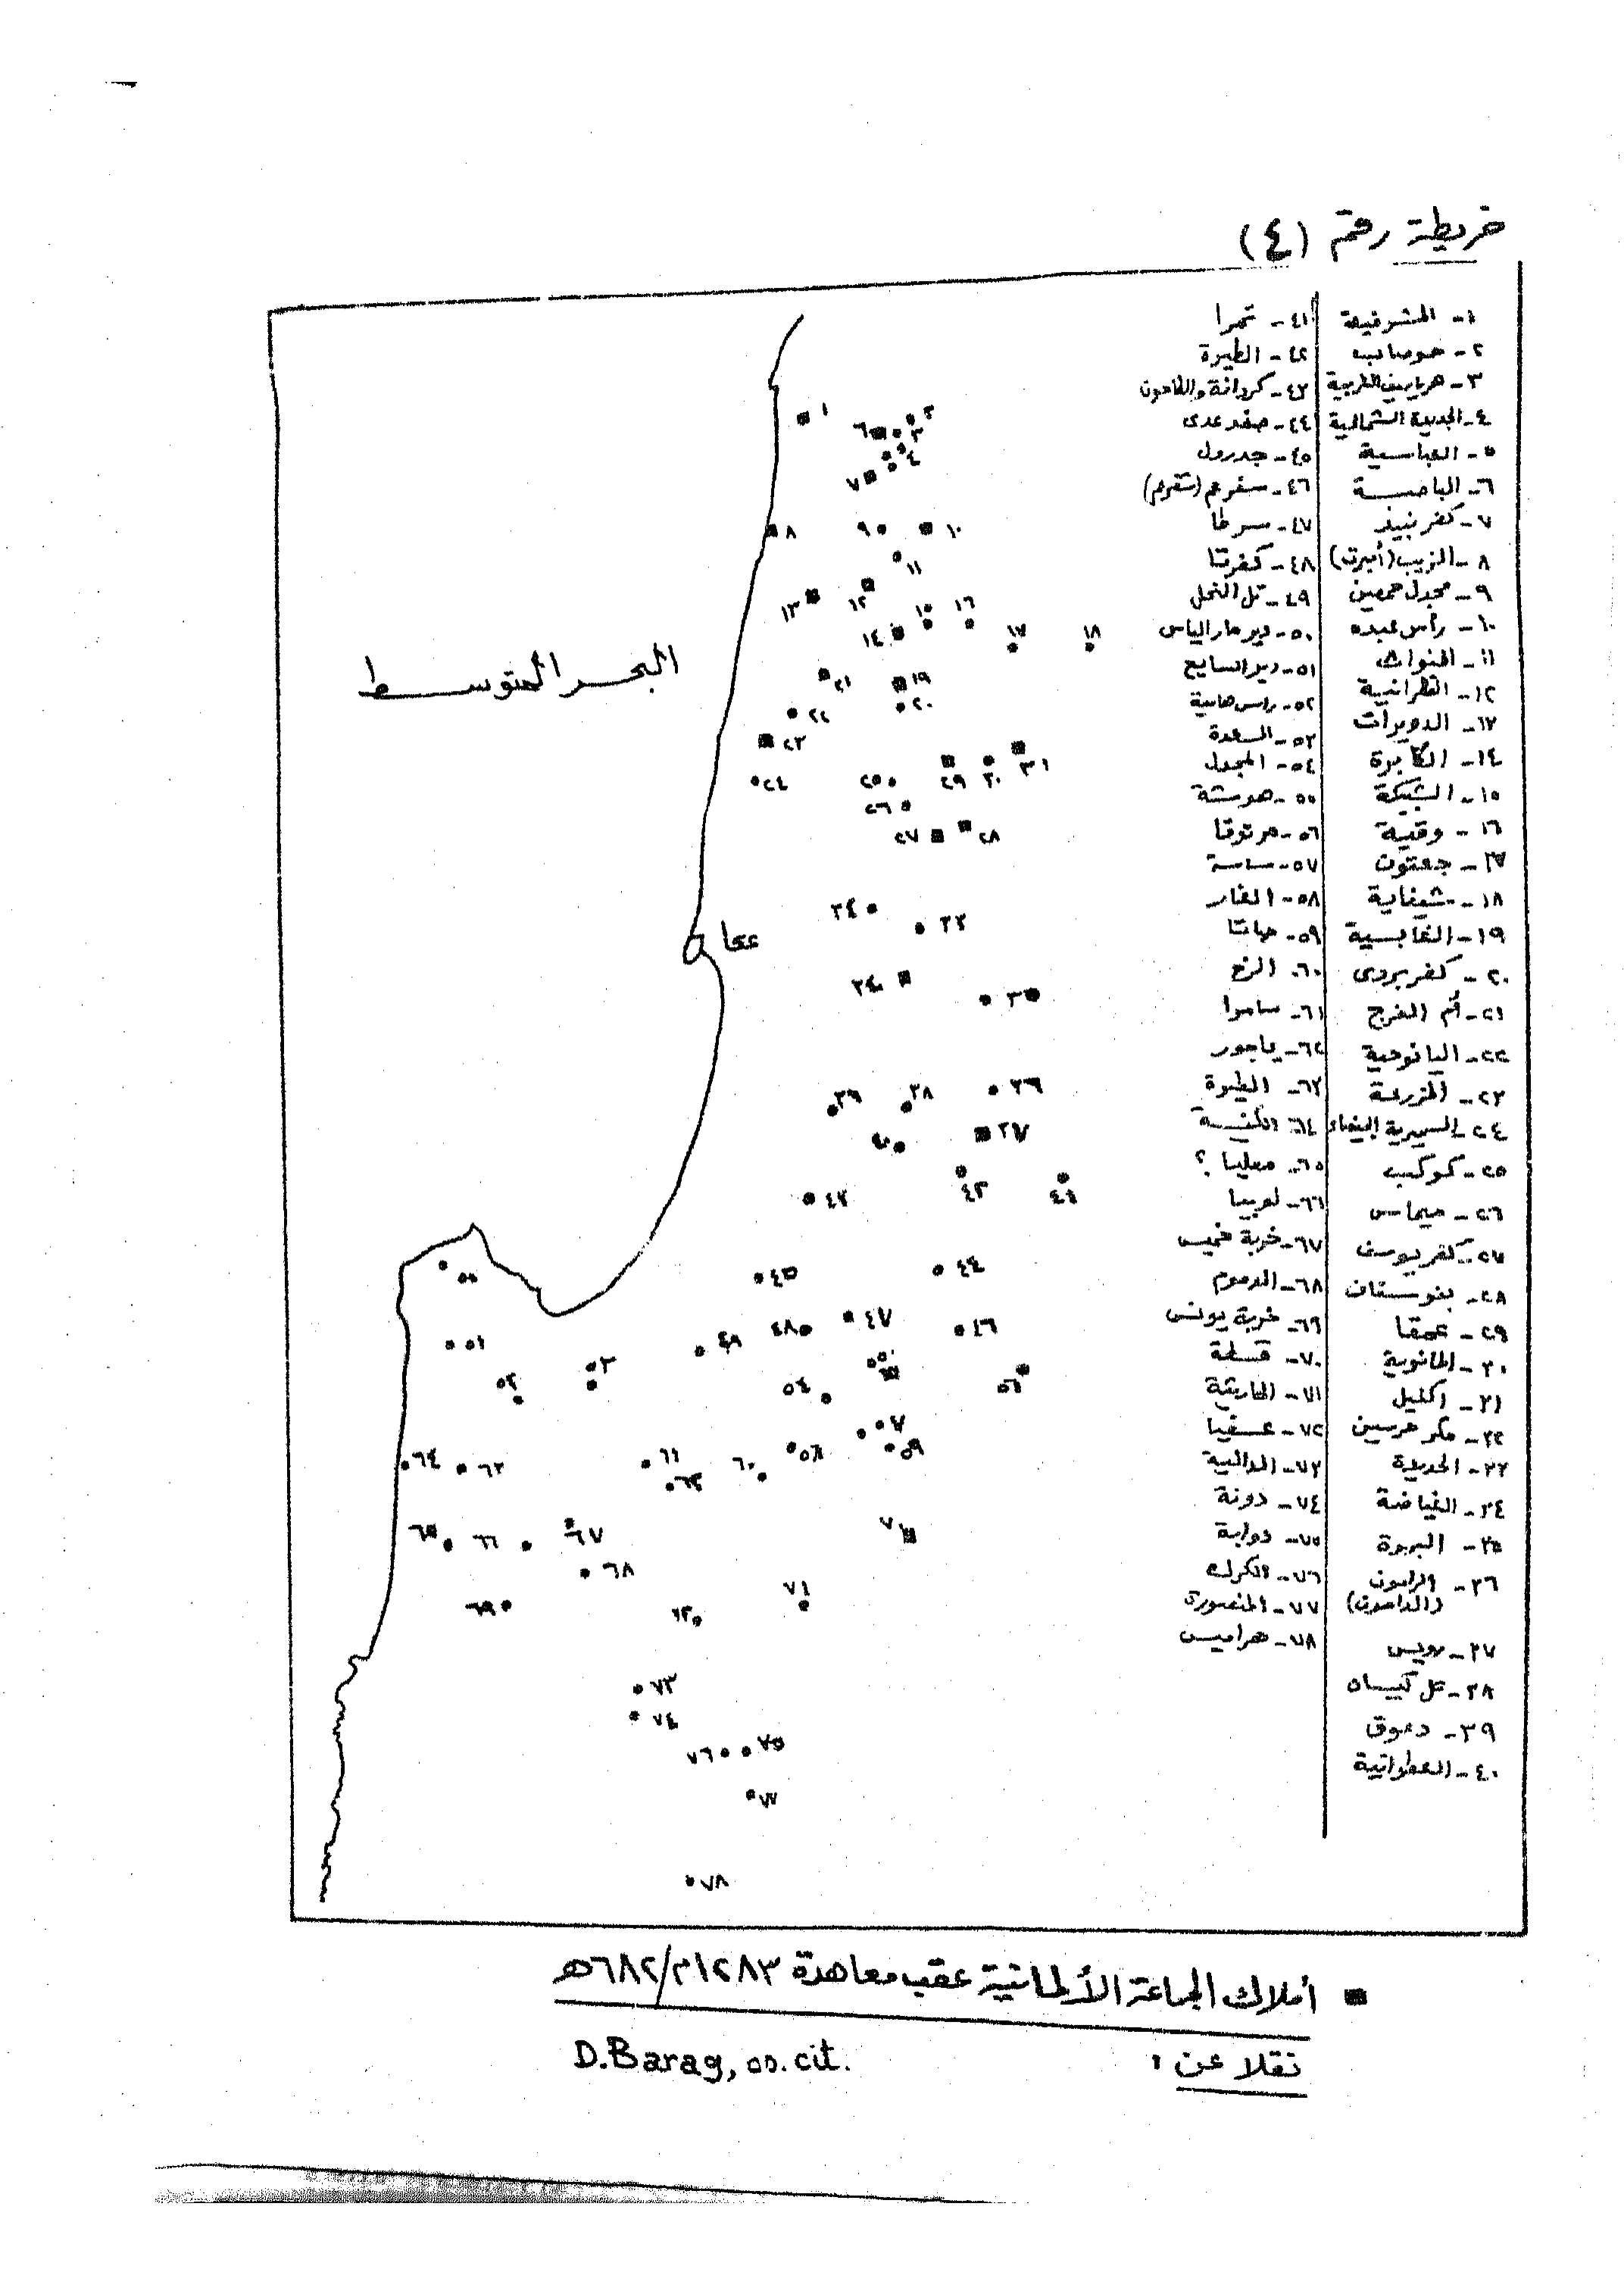 خريطة رقم (٤)
١- المشرفية
٢- حومات
٣-
٤- الجديدة الشمالية
٥- العباسية
٦- الباصة
٧- كفر نبيذ
٨- الزيب (أمبرت)
٩- مجدل حمصين
١٠- رأس عبده
١١- المنوات
١٢- القطرانية
١٣- الدويرات
١٤- الكابرة
١٥- الشبيكة
١٦- وقية
١٧- جعتون
١٨- شيفاية
١٩- الغابسية
٢٠- كفر بردى
٢١- أم الفرج
٢٢- اليانوحية
٢٣- المزرعة
٢٤- السميرية البيضاء
٢٥- كوكب
٢٦- ميماس
٢٧- كفر يوسف
٢٨- بنوستان
٢٩- عمقا
٣٠- المانوية
٣١- اكليل
٣٢- مكر حرسين
٣٣- الجديدة
٣٤- الغياضة
٣٥- البروة
٣٦- الرامون (الدامون)
٣٧- رويس
٣٨- تل كيسان
٣٩- دعوق
٤٠- العطوانية
٤١- تمرا
٤٢- الطيرة
٤٣- كردانة والطاحون
٤٤- صفد عدى
٤٥- جدرول
٤٦- سفرعم (شفرعم)
٤٧- سرطا
٤٨- كفرتا
٤٩- تل النحل
٥٠- دير مار الياس
٥١- دير السايح
٥٢-
٥٣- السعدة
٥٤- المجدل
٥٥- هوشة
٥٦- مرتوقا
٥٧- ساسة
٥٨- الغار
٥٩-
٦٠- الزح
٦١- سامرا
٦٢- ياجور
٦٣- الطيرة
٦٤- الكنيسة
٦٥- معليا ؟
٦٦- لوبيا
٦٧- خربة خميس
٦٨- الدموم
٦٩- خربة يونس
٧٠- قسطة
٧١- الحارثية
٧٢- عسفيا
٧٣- الدالية
٧٤- دونة
٧٥- دوابة
٧٦- الكرك
٧٧- المنصورة
٧٨- هراميس
البحر المتوسط
عكا
أملاك الجماعة الألمانية عقب معاهدة ١٢٨٣م/٦٨٢هـ
نقلا عن :
D.Barag, op. cit.